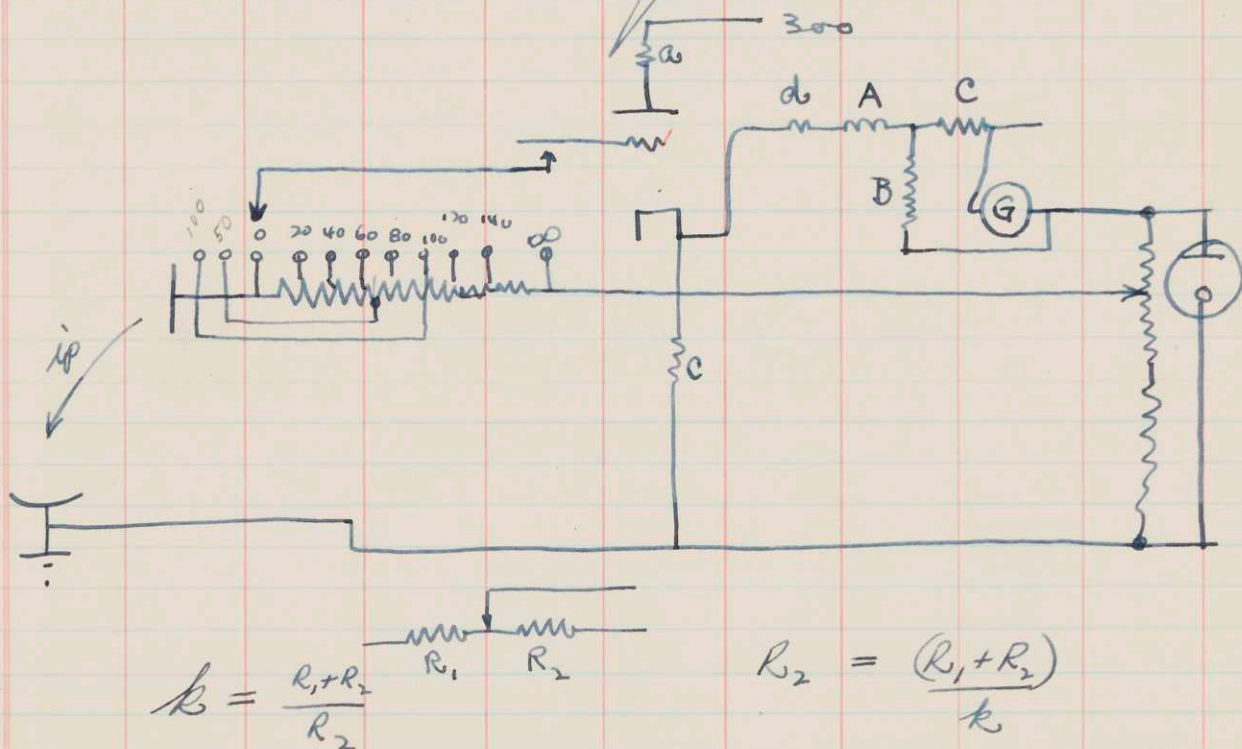 300
a
d A C
B G
100 50 0 20 40 60 80 100 120 140 ∞
C
ip
R₁ R₂
k = R₁+R₂ / R₂
R₂ = (R₁+R₂) / k